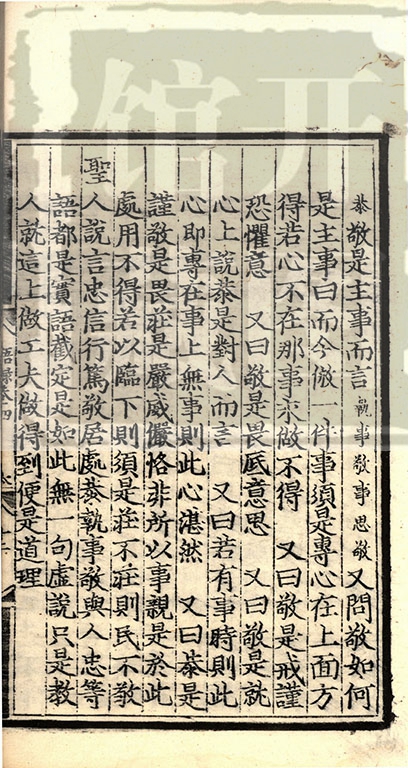 恭敬是主事而言執事敬事思敬又問敬如何
是主事曰而今做一件事須是專心在上面方
得若心不在那事便做不得 又曰敬是戒謹
恐懼意 又曰敬是畏底意思 又曰敬是就
心上說恭是對人而言 又曰若有事時則此
心即專在事上無事則此心湛然 又曰恭是
謹敬是畏莊是嚴威儼恪非所以事親是於此
處用不得若以臨下則須是莊不莊則民不敬
聖人說言忠信行篤敬居處恭執事敬與人忠等
語都是實語截定是如此無一句虛說只是教
人就這上做工夫做得到便是道理